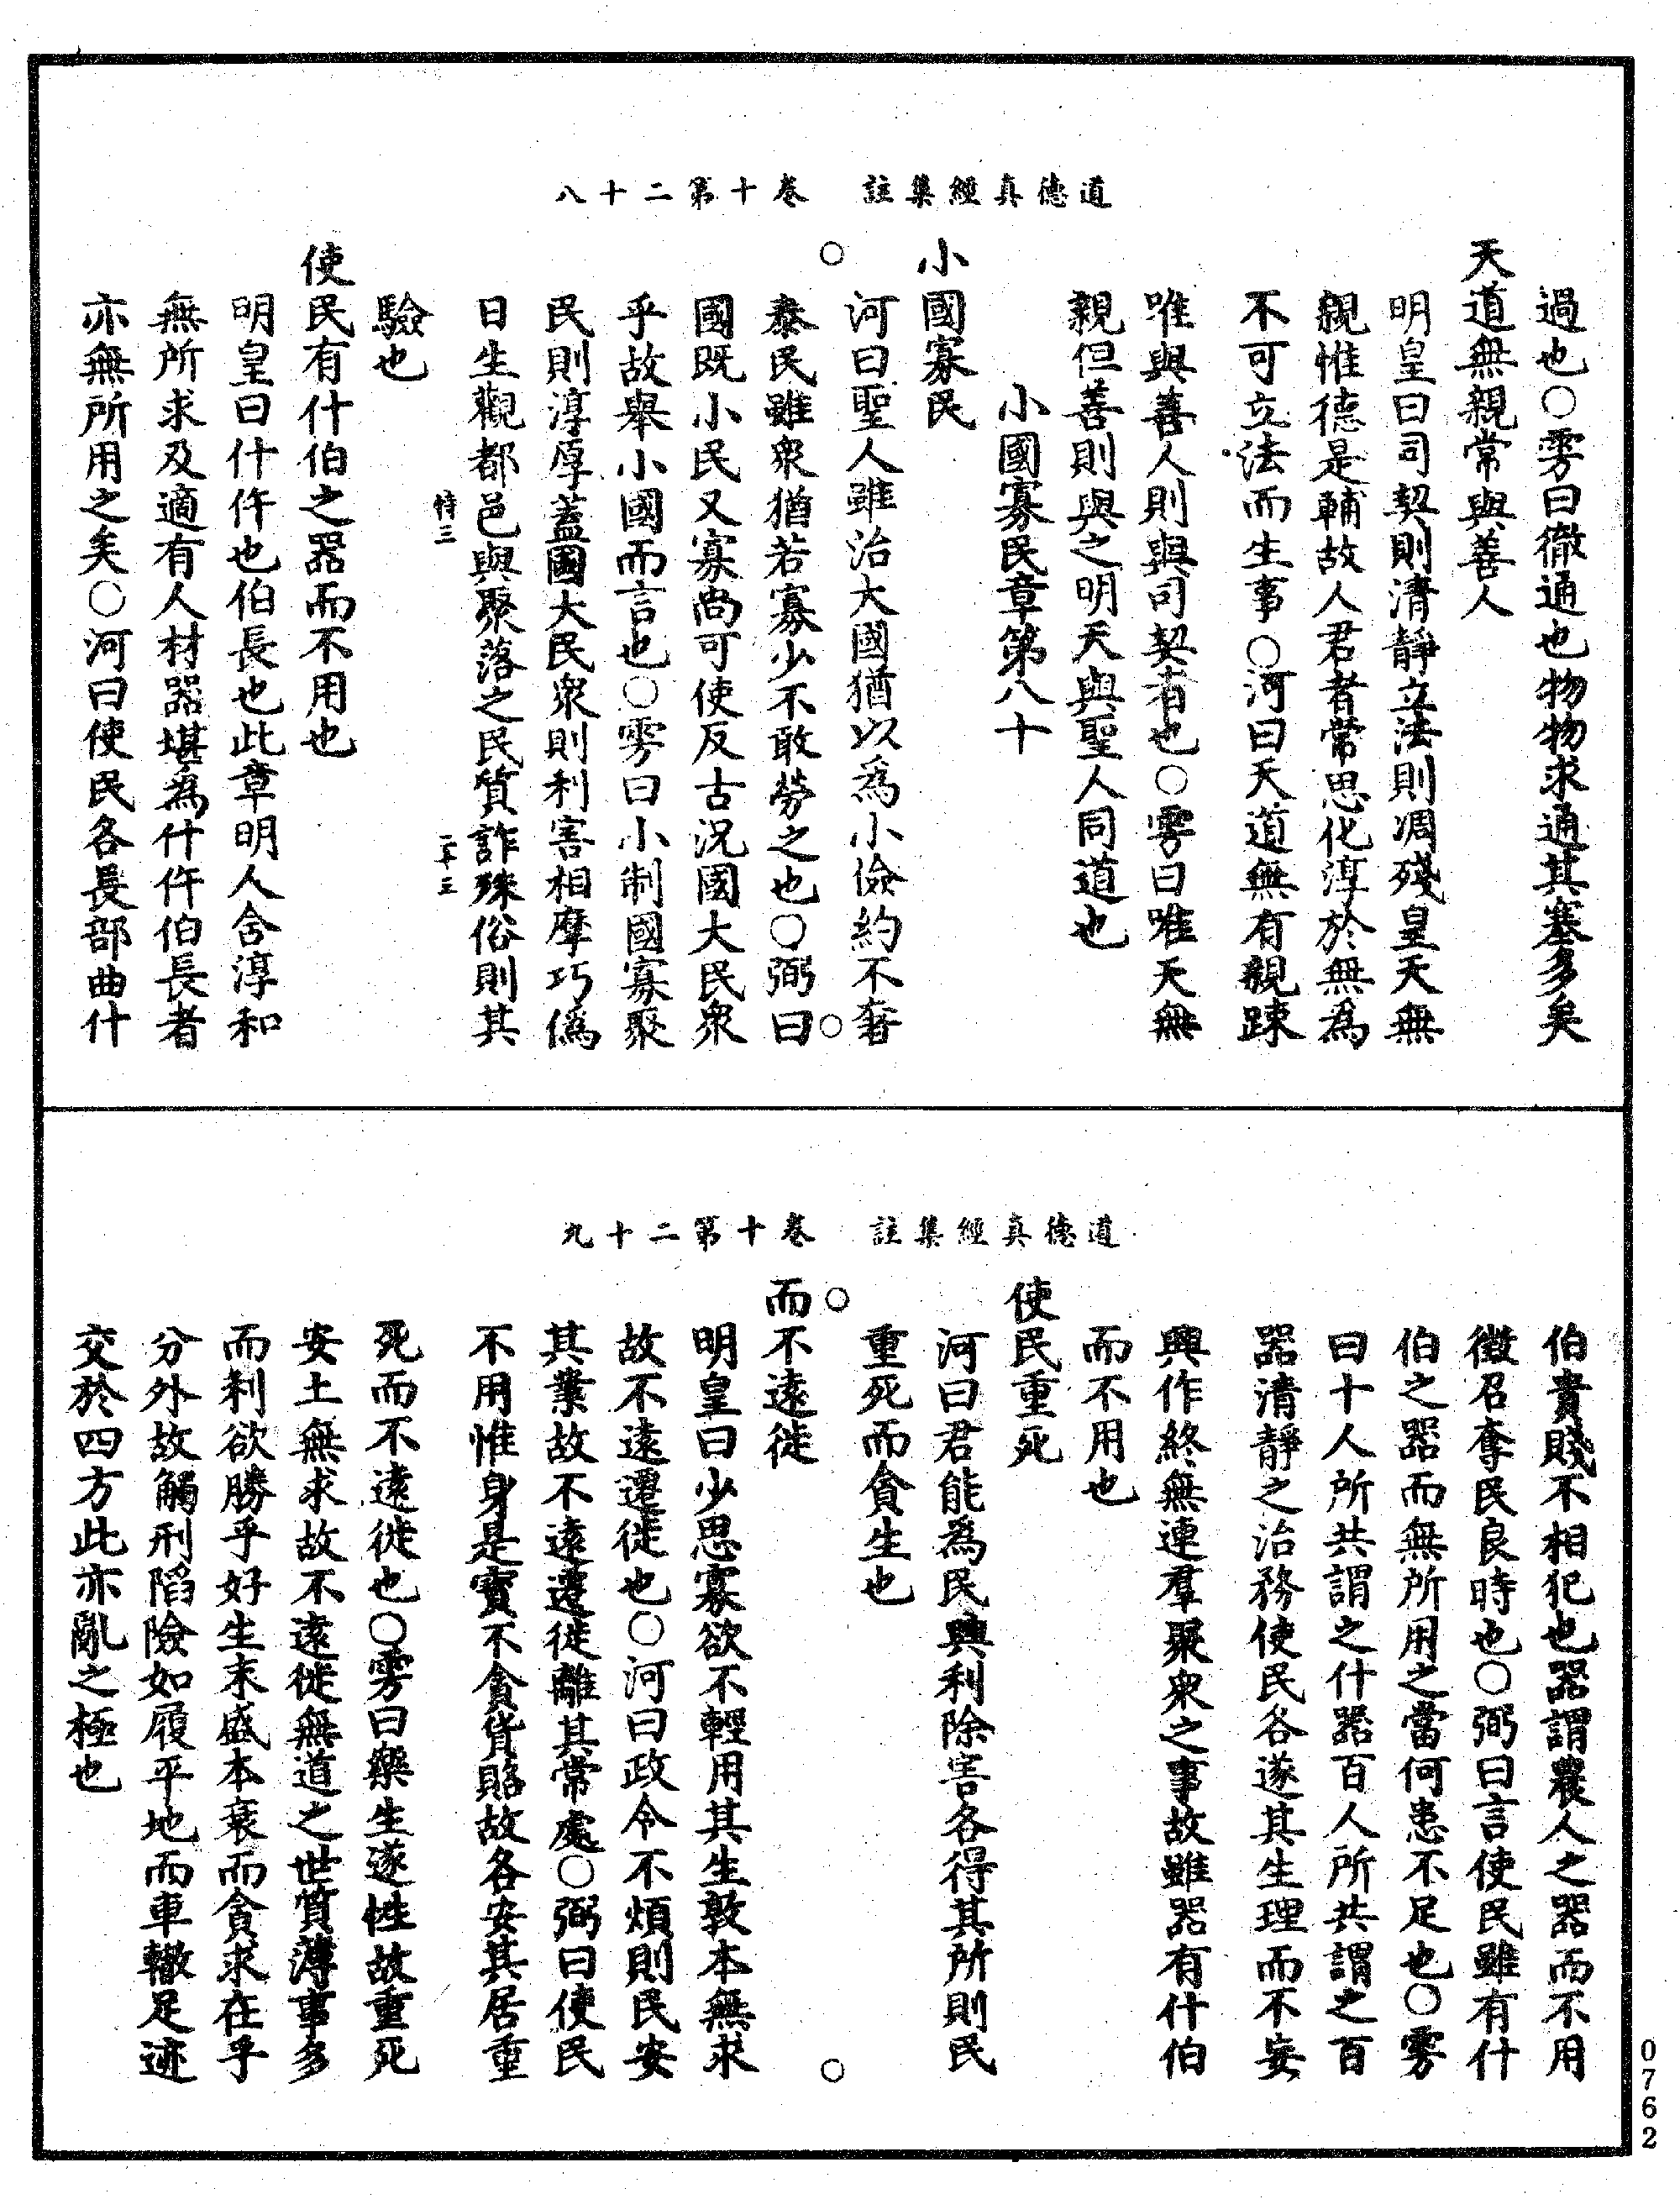 道德真經集註　卷十第二十八
過也○雱曰徹通也物物求通其塞多矣
天道無親常與善人
明皇曰司契則清靜立法則凋殘皇天無
親惟德是輔故人君者常思化淳於無為
不可立法而生事○河曰天道無有親踈
唯與善人則與司契者也○雱曰唯天無
親但善則與之明天與聖人同道也
小國寡民章第八十
小國寡民
河曰聖人雖治大國猶以為小儉約不奢
○泰民雖衆猶若寡少不敢勞之也○弼曰○
國既小民又寡尚可使反古況國大民衆
乎故舉小國而言也○雱曰小制國寡聚
民則淳厚蓋國大民衆則利害相摩巧偽
日生觀都邑與聚落之民質詐殊俗則其
恃三　二十三
驗也
使民有什伯之器而不用也
明皇曰什仵也伯長也此章明人含淳和
無所求及適有人材器堪為什仵伯長者
亦無所用之矣○河曰使民各長部曲什
道德真經集註　卷十第二十九
伯貴賤不相犯也器謂農人之器而不用
徵召奪民良時也○弼曰言使民雖有什
伯之器而無所用之當何患不足也○雱
曰十人所共謂之什器百人所共謂之百
器清靜之治務使民各遂其生理而不妄
興作終無連羣聚衆之事故雖器有什伯
而不用也
使民重死
河曰君能為民興利除害各得其所則民
重死而貪生也
○　○
而不遠徙
明皇曰少思寡欲不輕用其生敦本無求
故不遠遷徙也○河曰政令不煩則民安
其業故不遠遷徙離其常處○弼曰使民
不用惟身是寶不貪貨賂故各安其居重
死而不遠徙也○雱曰樂生遂性故重死
安土無求故不遠徙無道之世質薄事多
而利欲勝乎好生末盛本衰而貪求在乎
分外故觸刑陷險如履平地而車轍足迹
交於四方此亦亂之極也
0762